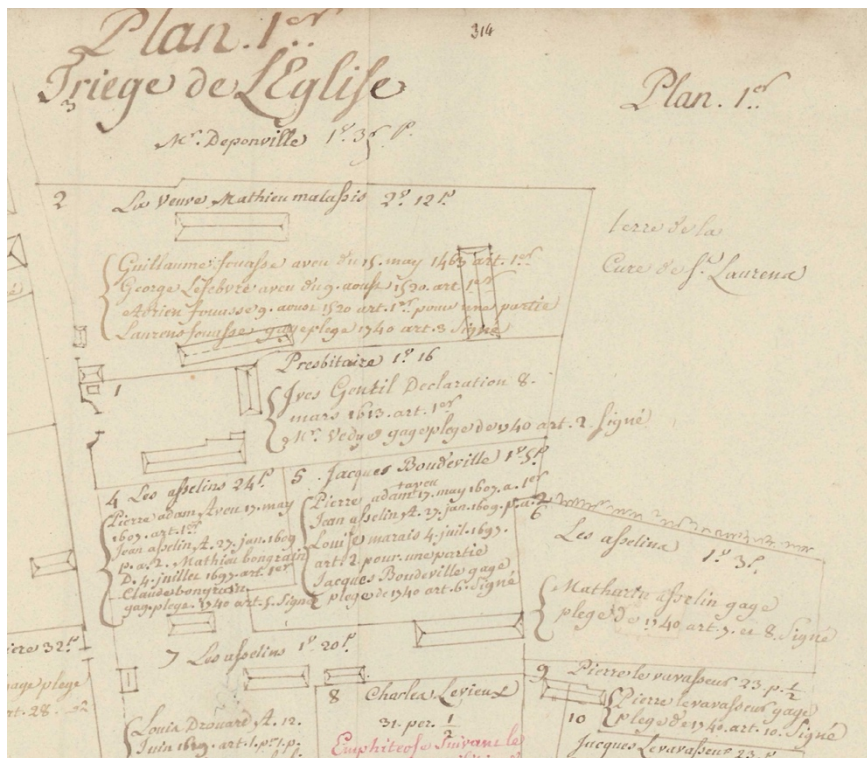 314
Plan. 1er
Triege de L'Eglise
3
Mr. Deponville
Plan. 1er
2 La Veuve Mathieu malassis 2a 12p
Guillaume fouasse aveu du 15. may 1463 art. 1er
George Lefebvre aveu du 9. aoust 1520. art 1er
Adrien fouasse 9. aoust 1520 art. 1er pour une partie
Laurens fouasse gageplege 1740 art. 3 Signé
terre de la
Cure de St. Laurens
1
Presbitaire 1a 16
Yves Gentil Declaration 8.
mars 1613. art. 1er
Mr. gageplege de 1740 art. 2. Signé
4 Les asselins 24p
Pierre adam Aveu 17. may
1607. art. 1er
Jean asselin A. 27. jan. 1609
p. a. 2. Mathieu bongrain
D. 4. juillet 1697. art. 1er
Claude bongrain
gag. plege. 1740 art. 5. Signé
5 Jacques Boudeville 1a 5p
Pierre adam aveu 17. may 1607. a. 1er
Jean asselin A. 27. jan. 1609. p. a. 2
Louise marais 4. juil. 1697.
art. 2 pour une partie
Jacques Boudeville gage
plege de 1740 art. 6. Signé
6
Les asselins 1a 3p
Mathurin asselin gage
plege de 1740 art. 7. et 8. Signé
7 Les asselins 1a 20p
Louis Drouard A. 12.
Juin 1609. art. 1. pr. 1. p.
8 Charles Levieux
31. per. 1/2
Emphiteose Suivant le
9 Pierre levavasseur 23. p. 1/2
Pierre levavasseur gage
plege de 1740. art. 10. Signé
10
Jacques Levavasseur 23. p
32p
gage plege
art. 28.